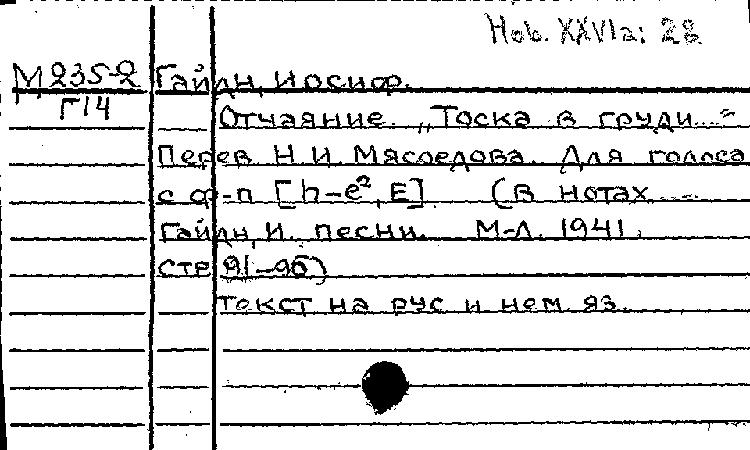 Hob. XXVIa: 28
М 235-2 Гайдн, Иосиф.
Г14 Отчаяние. „Тоска в груди...“
Перев. Н.И. Мясоедова. Для голоса
с ф-п [h-e², E] (В нотах
Гайдн, И. песни. М-Л. 1941.
стр. 91-96)
Текст на рус. и нем. яз.